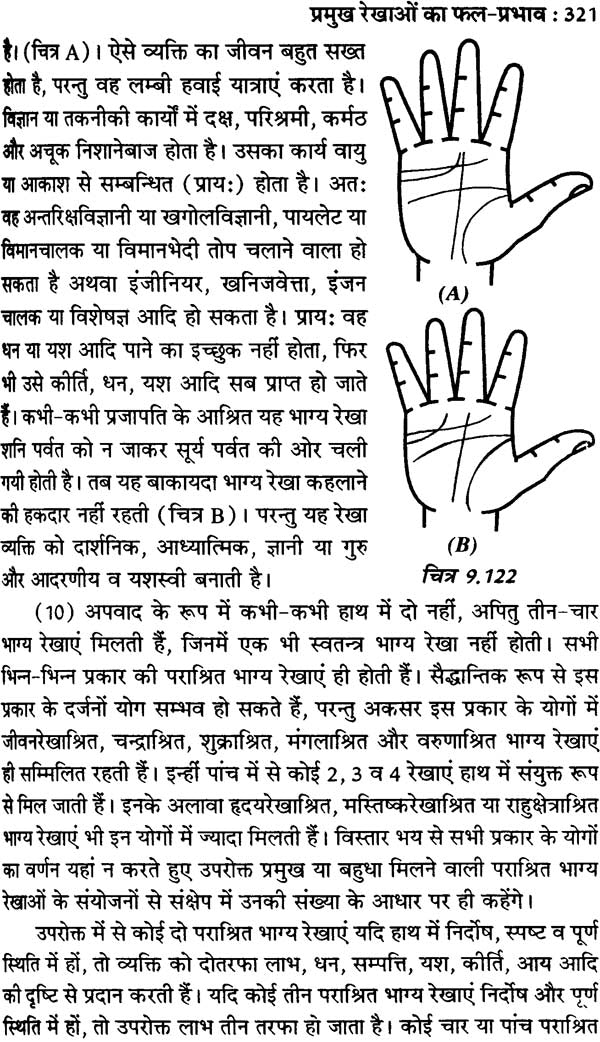 प्रमुख रेखाओं का फल-प्रभाव : 321
है। (चित्र A)। ऐसे व्यक्ति का जीवन बहुत सख्त
होता है, परन्तु वह लम्बी हवाई यात्राएं करता है।
विज्ञान या तकनीकी कार्यों में दक्ष, परिश्रमी, कर्मठ
और अचूक निशानेबाज होता है। उसका कार्य वायु
या आकाश से सम्बन्धित (प्राय:) होता है। अत:
वह अन्तरिक्षविज्ञानी या खगोलविज्ञानी, पायलेट या
विमानचालक या विमानभेदी तोप चलाने वाला हो
सकता है अथवा इंजीनियर, खनिजवेत्ता, इंजन
चालक या विशेषज्ञ आदि हो सकता है। प्राय: वह
धन या यश आदि पाने का इच्छुक नहीं होता, फिर
भी उसे कीर्ति, धन, यश आदि सब प्राप्त हो जाते
हैं। कभी-कभी प्रजापति के आश्रित यह भाग्य रेखा
शनि पर्वत को न जाकर सूर्य पर्वत की ओर चली
गयी होती है। तब यह बाकायदा भाग्य रेखा कहलाने
की हकदार नहीं रहती (चित्र B)। परन्तु यह रेखा
व्यक्ति को दार्शनिक, आध्यात्मिक, ज्ञानी या गुरु
और आदरणीय व यशस्वी बनाती है।
(A)
(B)
चित्र 9.122
(10) अपवाद के रूप में कभी-कभी हाथ में दो नहीं, अपितु तीन-चार
भाग्य रेखाएं मिलती हैं, जिनमें एक भी स्वतन्त्र भाग्य रेखा नहीं होती। सभी
भिन्न-भिन्न प्रकार की पराश्रित भाग्य रेखाएं ही होती हैं। सैद्धान्तिक रूप से इस
प्रकार के दर्जनों योग सम्भव हो सकते हैं, परन्तु अकसर इस प्रकार के योगों में
जीवनरेखाश्रित, चन्द्राश्रित, शुक्राश्रित, मंगलाश्रित और वरुणाश्रित भाग्य रेखाएं
ही सम्मिलित रहती हैं। इन्हीं पांच में से कोई 2, 3 व 4 रेखाएं हाथ में संयुक्त रूप
से मिल जाती हैं। इनके अलावा हृदयरेखाश्रित, मस्तिष्करेखाश्रित या राहुक्षेत्राश्रित
भाग्य रेखाएं भी इन योगों में ज्यादा मिलती हैं। विस्तार भय से सभी प्रकार के योगों
का वर्णन यहां न करते हुए उपरोक्त प्रमुख या बहुधा मिलने वाली पराश्रित भाग्य
रेखाओं के संयोजनों से संक्षेप में उनकी संख्या के आधार पर ही कहेंगे।
उपरोक्त में से कोई दो पराश्रित भाग्य रेखाएं यदि हाथ में निर्दोष, स्पष्ट व पूर्ण
स्थिति में हों, तो व्यक्ति को दोतरफा लाभ, धन, सम्पत्ति, यश, कीर्ति, आय आदि
की दृष्टि से प्रदान करती हैं। यदि कोई तीन पराश्रित भाग्य रेखाएं निर्दोष और पूर्ण
स्थिति में हों, तो उपरोक्त लाभ तीन तरफा हो जाता है। कोई चार या पांच पराश्रित